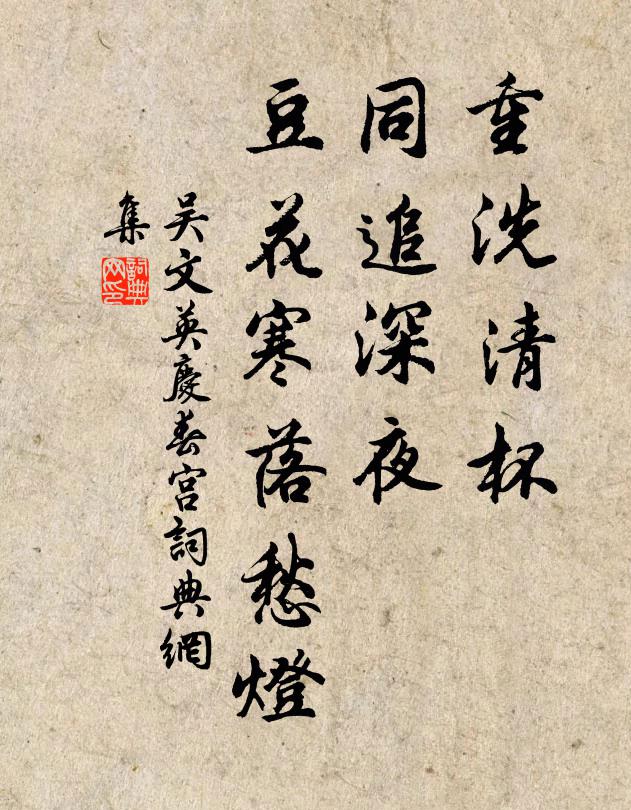 重洗清杯
同追深夜
豆花寒落愁燈
吴文英慶春宫詞典網
集
詞典網印